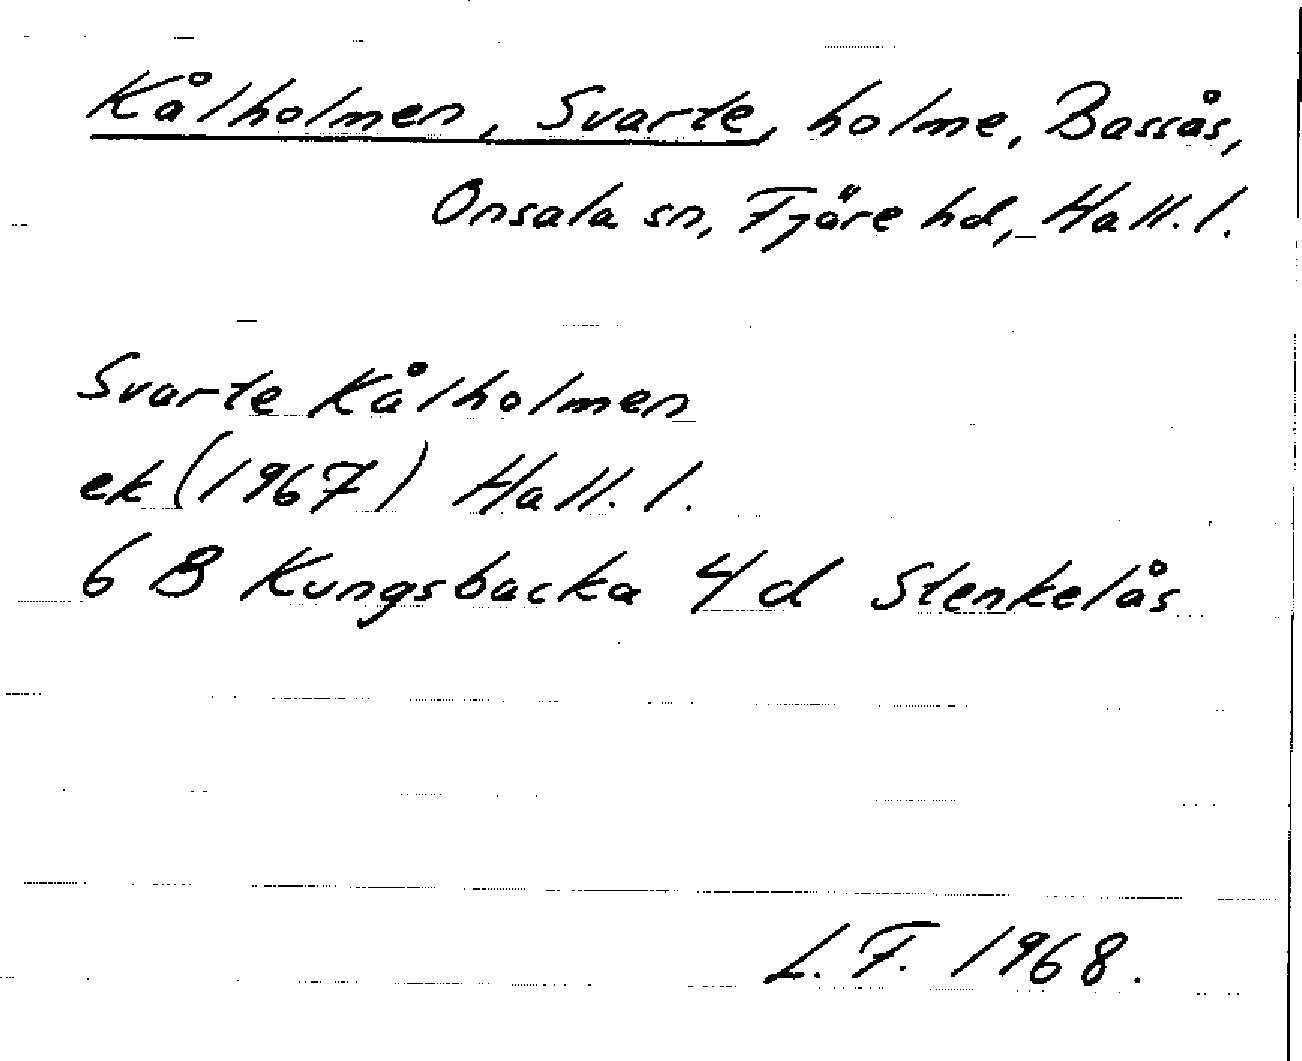 Kålholmen, Svarte, holme, Bassås,
Onsala sn, Fjäre hd, Hall. l.
Svarte Kålholmen
ek (1967) Hall. l.
6 B Kungsbacka 4 d Stenkelås
L. F. 1968.